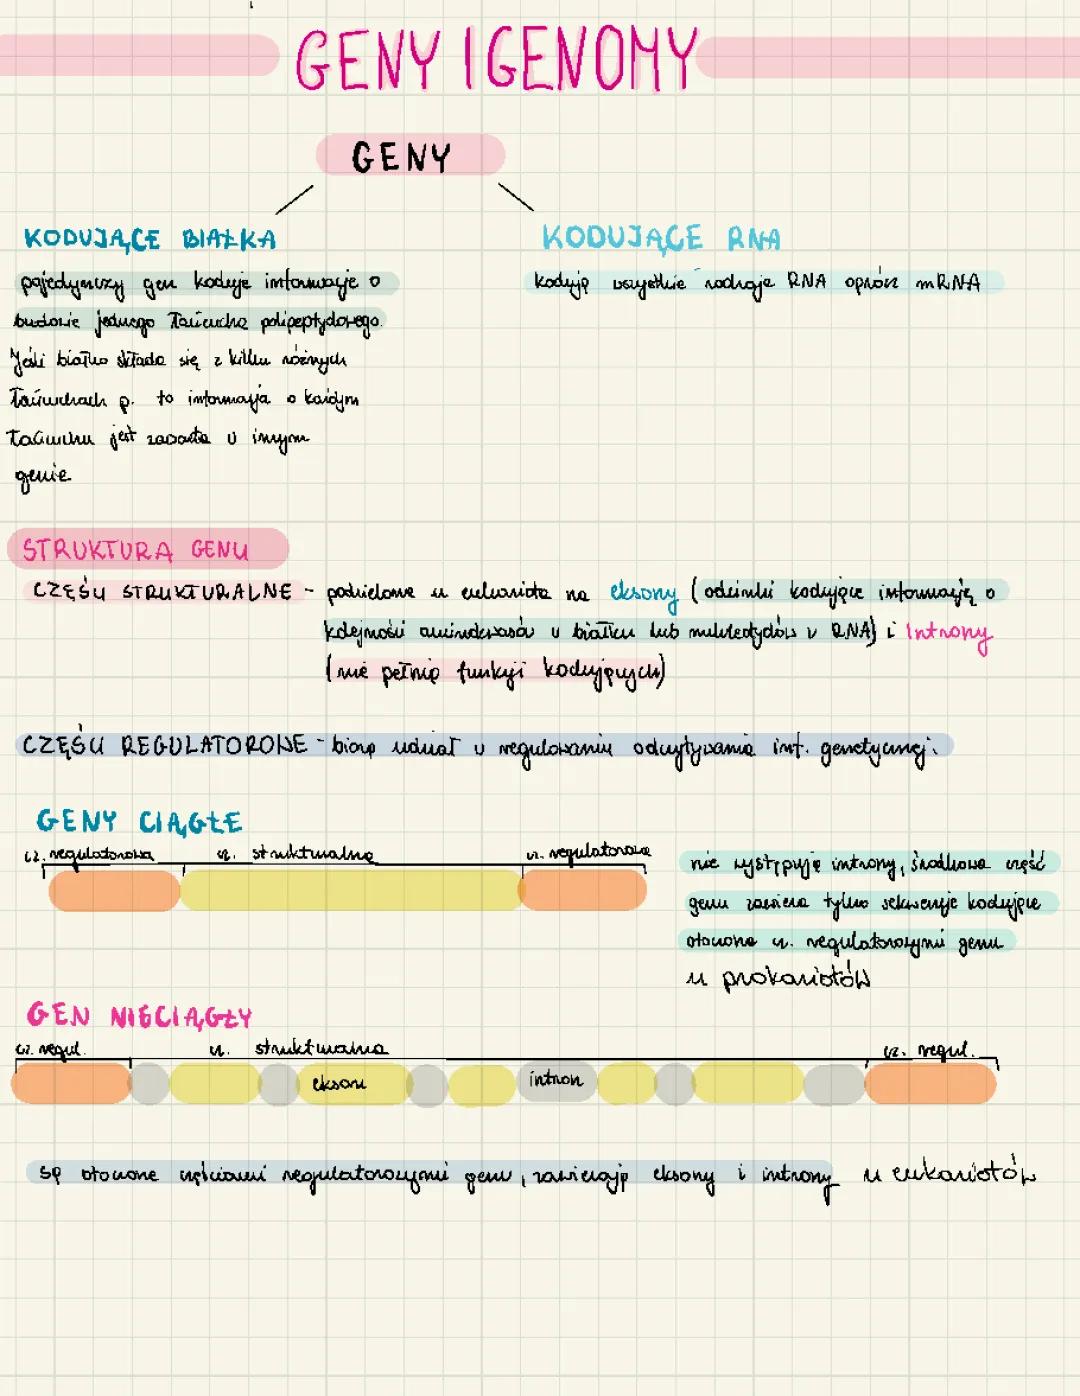 GENY I GENOMY
GENY
KODUJĄCE BIAŁKA
pojedynczy gen koduje informacje o
budowie jednego łańcucha polipeptydowego.
Jeśli białko składa się z kilku różnych
łańcuchach p. to informacja o każdym
łańcuchu jest zawarta w innym
genie
KODUJĄCE RNA
kodują wszystkie rodzaje RNA oprócz mRNA
STRUKTURA GENU
CZĘŚCI STRUKTURALNE - podzielone u eukariota na eksony (odcinki kodujące informację o
kolejności aminokwasów w białku lub nukleotydów w RNA) i Introny
(nie pełnią funkcji kodujących)
CZĘŚCI REGULATOROWE - biorą udział w regulowaniu odczytywania inf. genetycznej.
GENY CIĄGŁE
cz. regulatorowa cz. strukturalna cz. regulatorowa
nie występują introny, środkowa część
genu zawiera tylko sekwencje kodujące
otoczona cz. regulatorowymi genu
u prokariotów
GEN NIECIĄGŁY
cz. regul. cz. strukturalna cz. regul.
ekson intron
są otoczone częściami regulatorowymi genu, zawierają eksony i introny u eukariotów